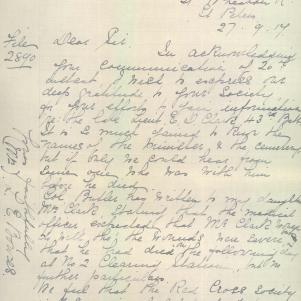 St Peters
27-9-17
File 2890
Dear Sir
In acknowledging
your communication of 20th
instant I wish to express our
deep gratitude to your Society
for your efforts to gain information
re the late Lieut E. D. Clark 43rd
It is much to have the
names of the Minister, & the cemetery
but if only we could hear from
some one who was with him
before he died
Col Butler has written to my daughter
Mrs Clark stating that the medical
officer that Mr Clark
the wounds were severe
that he had died the following day
at No 2 Clearing station, no
further particulars
We feel that the Red Cross Society